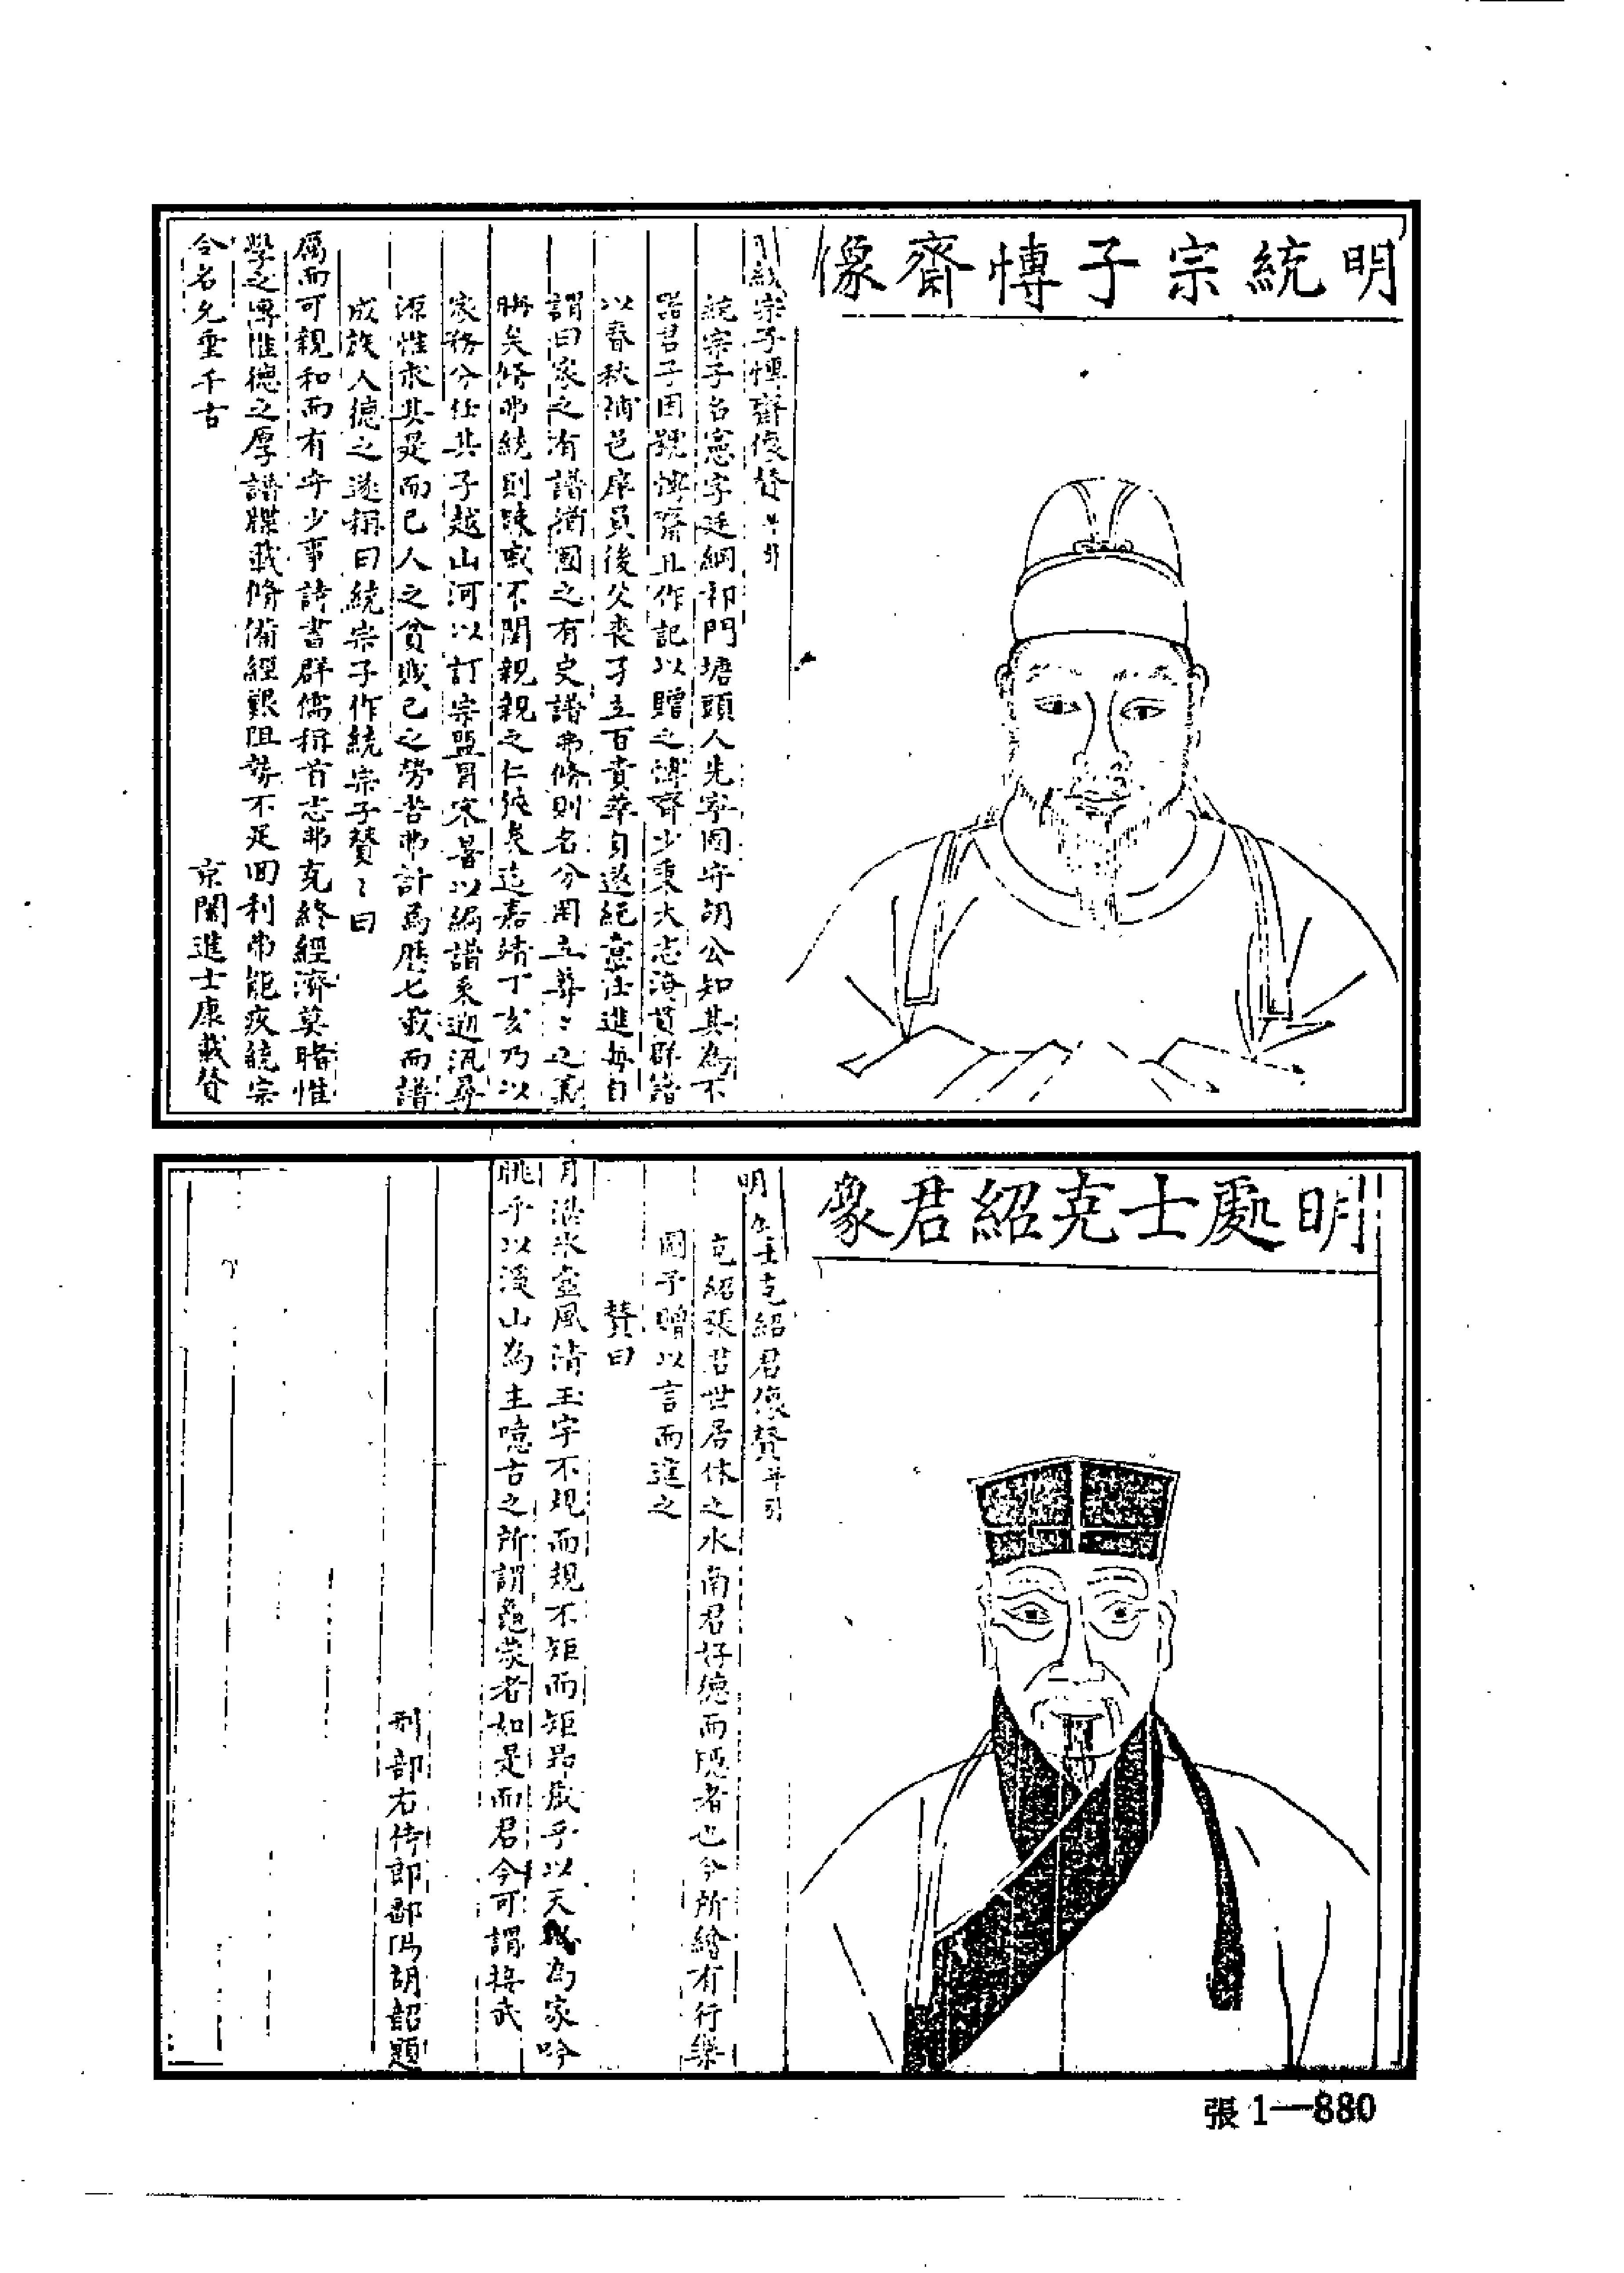 明統宗子慱齋像
統宗子慱齋像贊
統宗子名憲字廷綱祁門塘頭人先寧國守胡公知其為不
器君子因號慱齋且作記以贈之慱齋少秉大志淹貫群籍
以春秋補邑庠員後父喪孑立百責萃身遂絕意仕進每自
謂曰家之有譜猶國之有史譜弗脩則名分罔立尊尊之義
矣脩弗統則疎戚不閒親親之仁狹矣迨嘉靖丁亥乃以
家務分任其子越山河以訂宗盟冒寒暑以編譜系遡汎尋
源惟求其是而已人之貧賤己之勞苦弗計焉歷七載而譜
成族人德之遂稱曰統宗子作統宗子贊〻曰
厲而可親和而有守少事詩書群儒稱首志弗克終經濟莫睹惟
學之慱惟德之厚譜牒載脩備經艱阻勢不足回利弗能疚統宗
令名允垂千古
京闈進士康載贊
明處士克紹君像
明處士克紹君像贊并引
克紹張君世居休之水南君好德而隱者也今所繪有行樂
圖予贈以言而進之
贊曰
月湛氷壺風清玉宇不規而規不矩而矩昂藏乎以天地為家吟
眺乎以溪山為主噫古之所謂龜蒙者如是而君今可謂接武
刑部右侍郎鄱陽胡韶題
張1—880